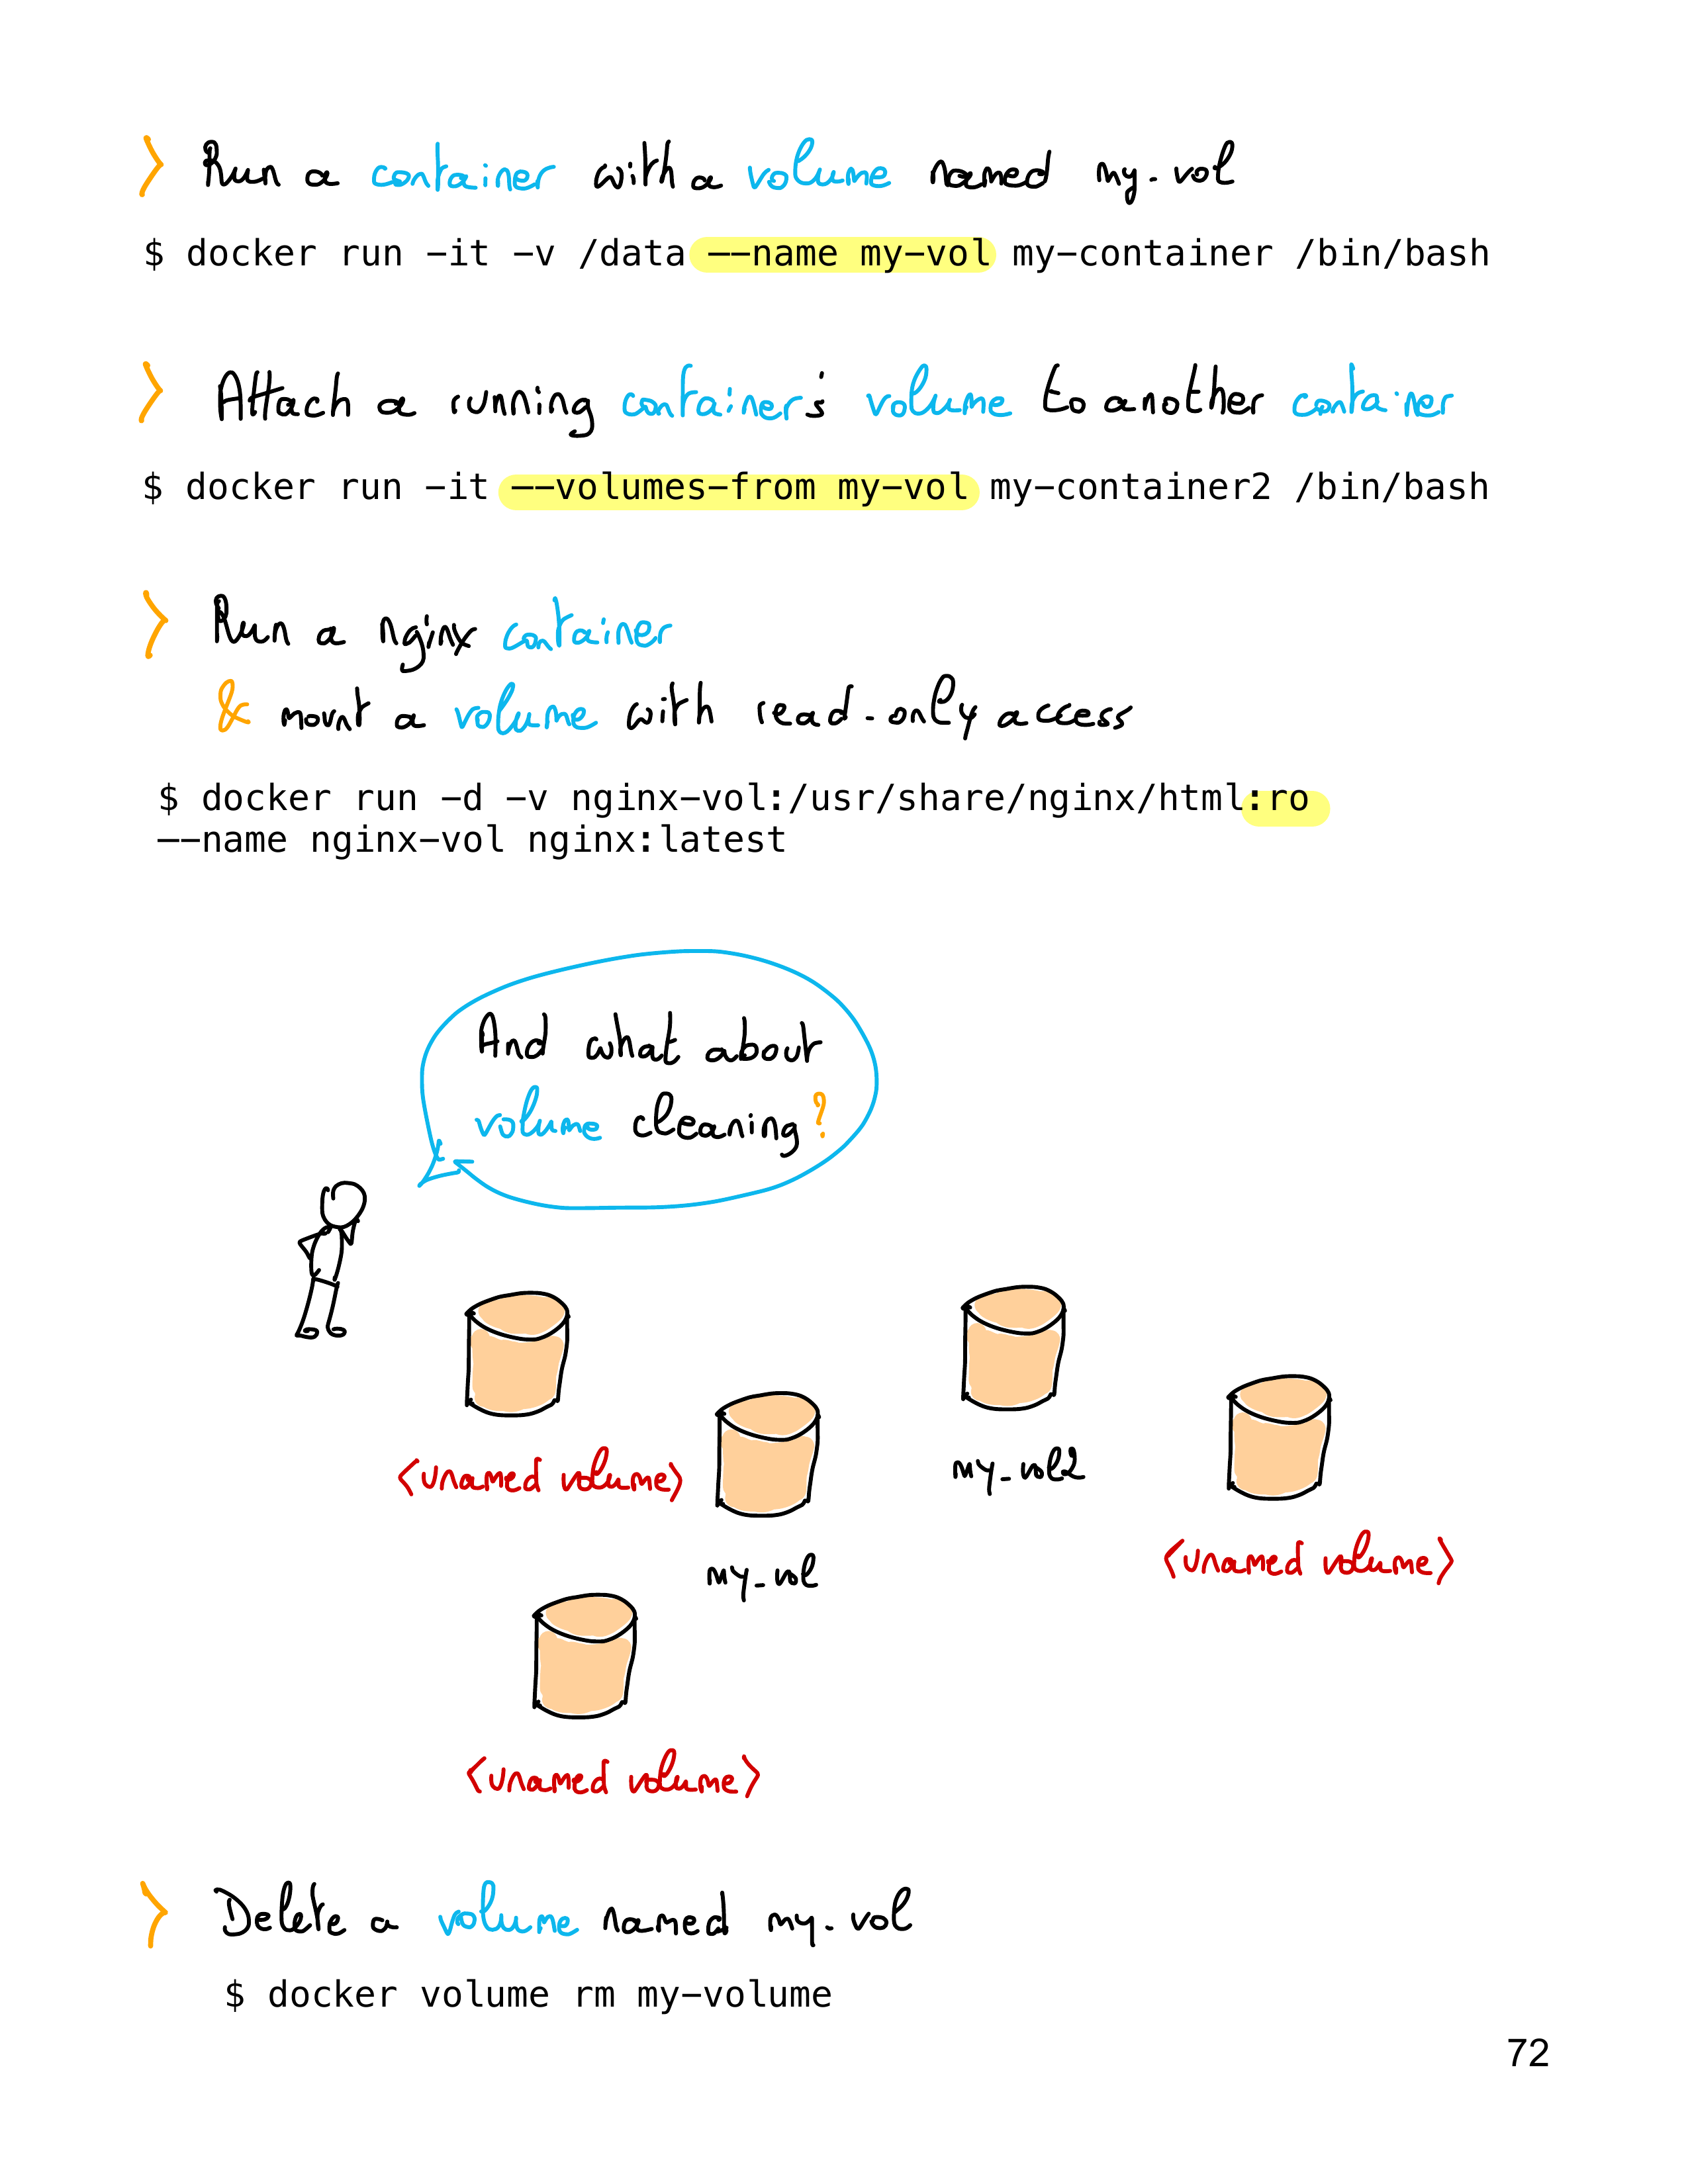 > Run a container with a volume named my-vol
$ docker run -it -v /data --name my-vol my-container /bin/bash
> Attach a running container's volume to another container
$ docker run -it --volumes-from my-vol my-container2 /bin/bash
> Run a nginx container
& mount a volume with read-only access
$ docker run -d -v nginx-vol:/usr/share/nginx/html:ro
--name nginx-vol nginx:latest
And what about
volume cleaning?
<unamed volume>
my_vol
my_vol2
<unamed volume>
<unamed volume>
> Delete a volume named my-vol
$ docker volume rm my-volume
72